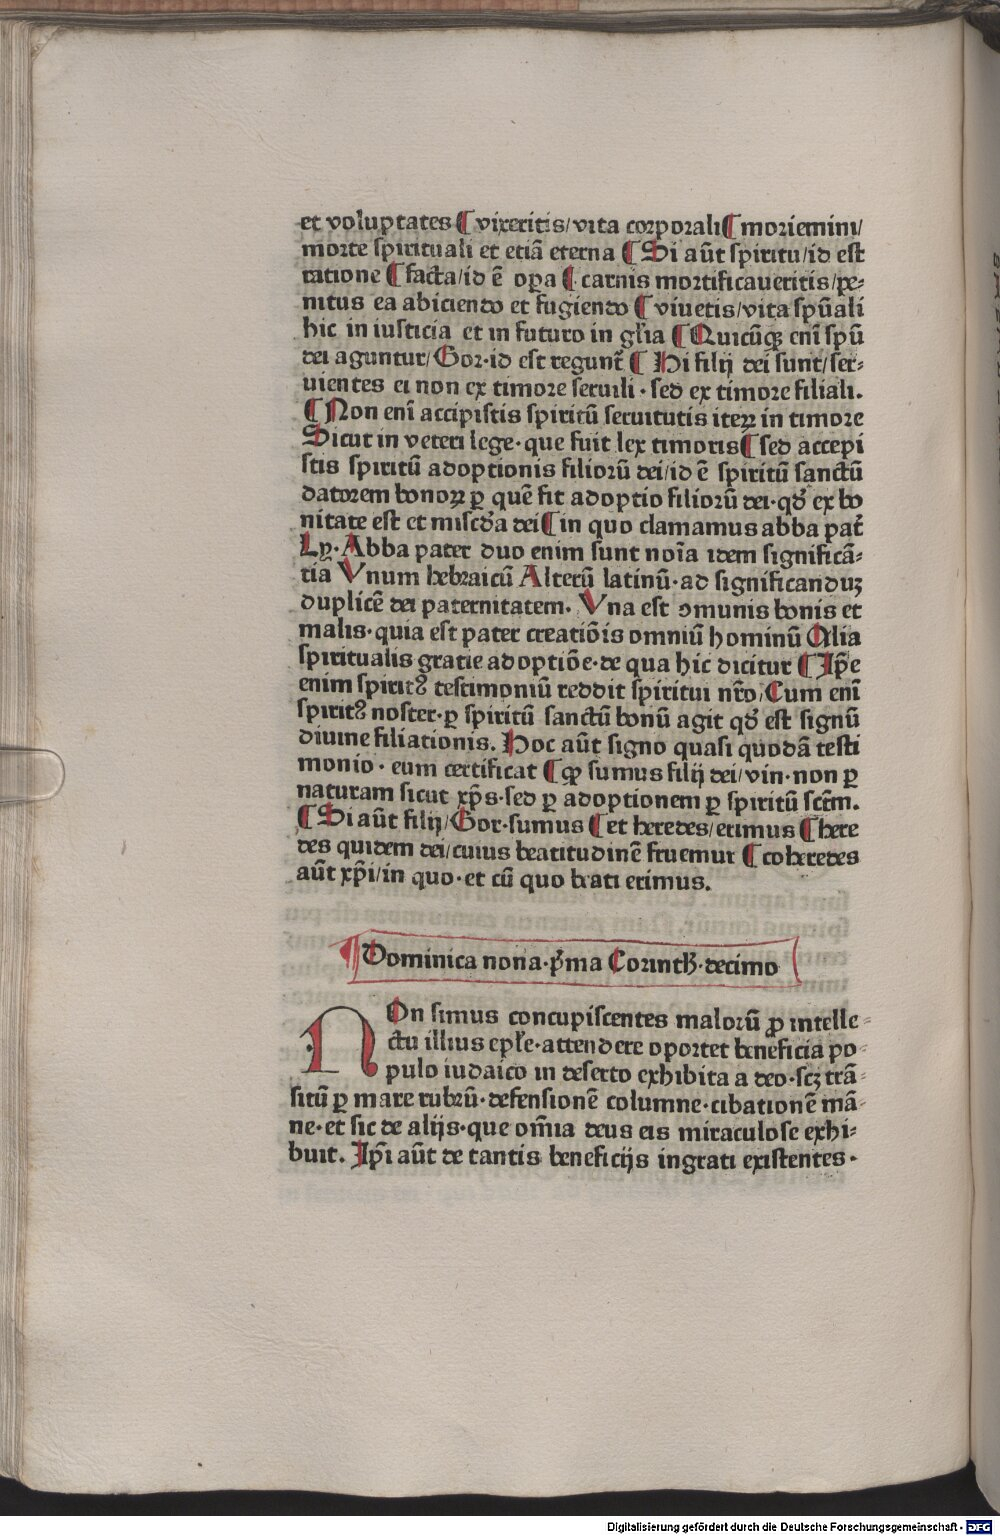 et voluptates ¶ vixeritis/vita corporali ¶ moriemini/
morte spirituali et etiā eterna ¶ Si aūt spiritu/id est
ratione ¶ facta/id ē opa ¶ carnis mortificaueritis/pe⸗
nitus ea abiciendo et fugiendo ¶ viuetis/vita spūali
hic in iusticia et in futuro in glīa ¶ Quicūqꝫ enī spū
dei aguntur/Gor·id est regunt̄ ¶ Hi filij dei sunt/ser⸗
uientes ei non ex timore seruili·sed ex timore filiali.
¶ Non enī accipistis spiritū seruitutis iteꝝ in timore
Sicut in veteri lege·que fuit lex timoris ¶ sed accepi
stis spiritū adoptionis filiorū dei/id ē spiritū sanctū
datorem bonoꝝ ꝑ quē fit adoptio filiorū dei·qđ ex bo
nitate est et miscđa dei ¶ in quo clamamus abba pat̄
Ly·Abba pater duo enim sunt noīa idem significā⸗
tia Vnum hebraicū Alterū latinū·ad significanduꝫ
duplicē dei paternitatem. Vna est ꝯmunis bonis et
malis·quia est pater creatiōis omniū hominū Alia
spiritualis gratie adoptiōe·de qua hic dicitur ¶ Ip̄e
enim spiritꝰ testimoniū reddit spiritui nr̄o/Cum enī
spiritꝰ noster·ꝑ spiritū sanctū bonū agit qđ est signū
diuine filiationis. Hoc aūt signo quasi quodā testi
monio·eum certificat ¶ ꝙ sumus filij dei/vin·non ꝑ
naturam sicut xp̄s·sed ꝑ adoptionem ꝑ spiritū sct̄m.
¶ Si aūt filij/Gor·sumus ¶ et heredes/erimus ¶ here
des quidem dei/cuius beatitudinē fruemur ¶ coheredes
aūt xp̄i/in quo·et cū quo beati erimus.
¶ Dominica nona·p̄ma Corinth̄·decimo
NOn simus concupiscentes malorū ꝓ intelle⸗
ctu illius epl̄e·attendere oportet beneficia po⸗
pulo iudaico in deserto exhibita a deo·scꝫ trā⸗
sitū ꝑ mare rubrū·defensionē columne·cibationē mā⸗
ne·et sic de alijs·que om̄ia deus eis miraculose exhi⸗
buit. Ip̄i aūt de tantis beneficijs ingrati existentes·
Digitalisierung gefördert durch die Deutsche Forschungsgemeinschaft - DFG